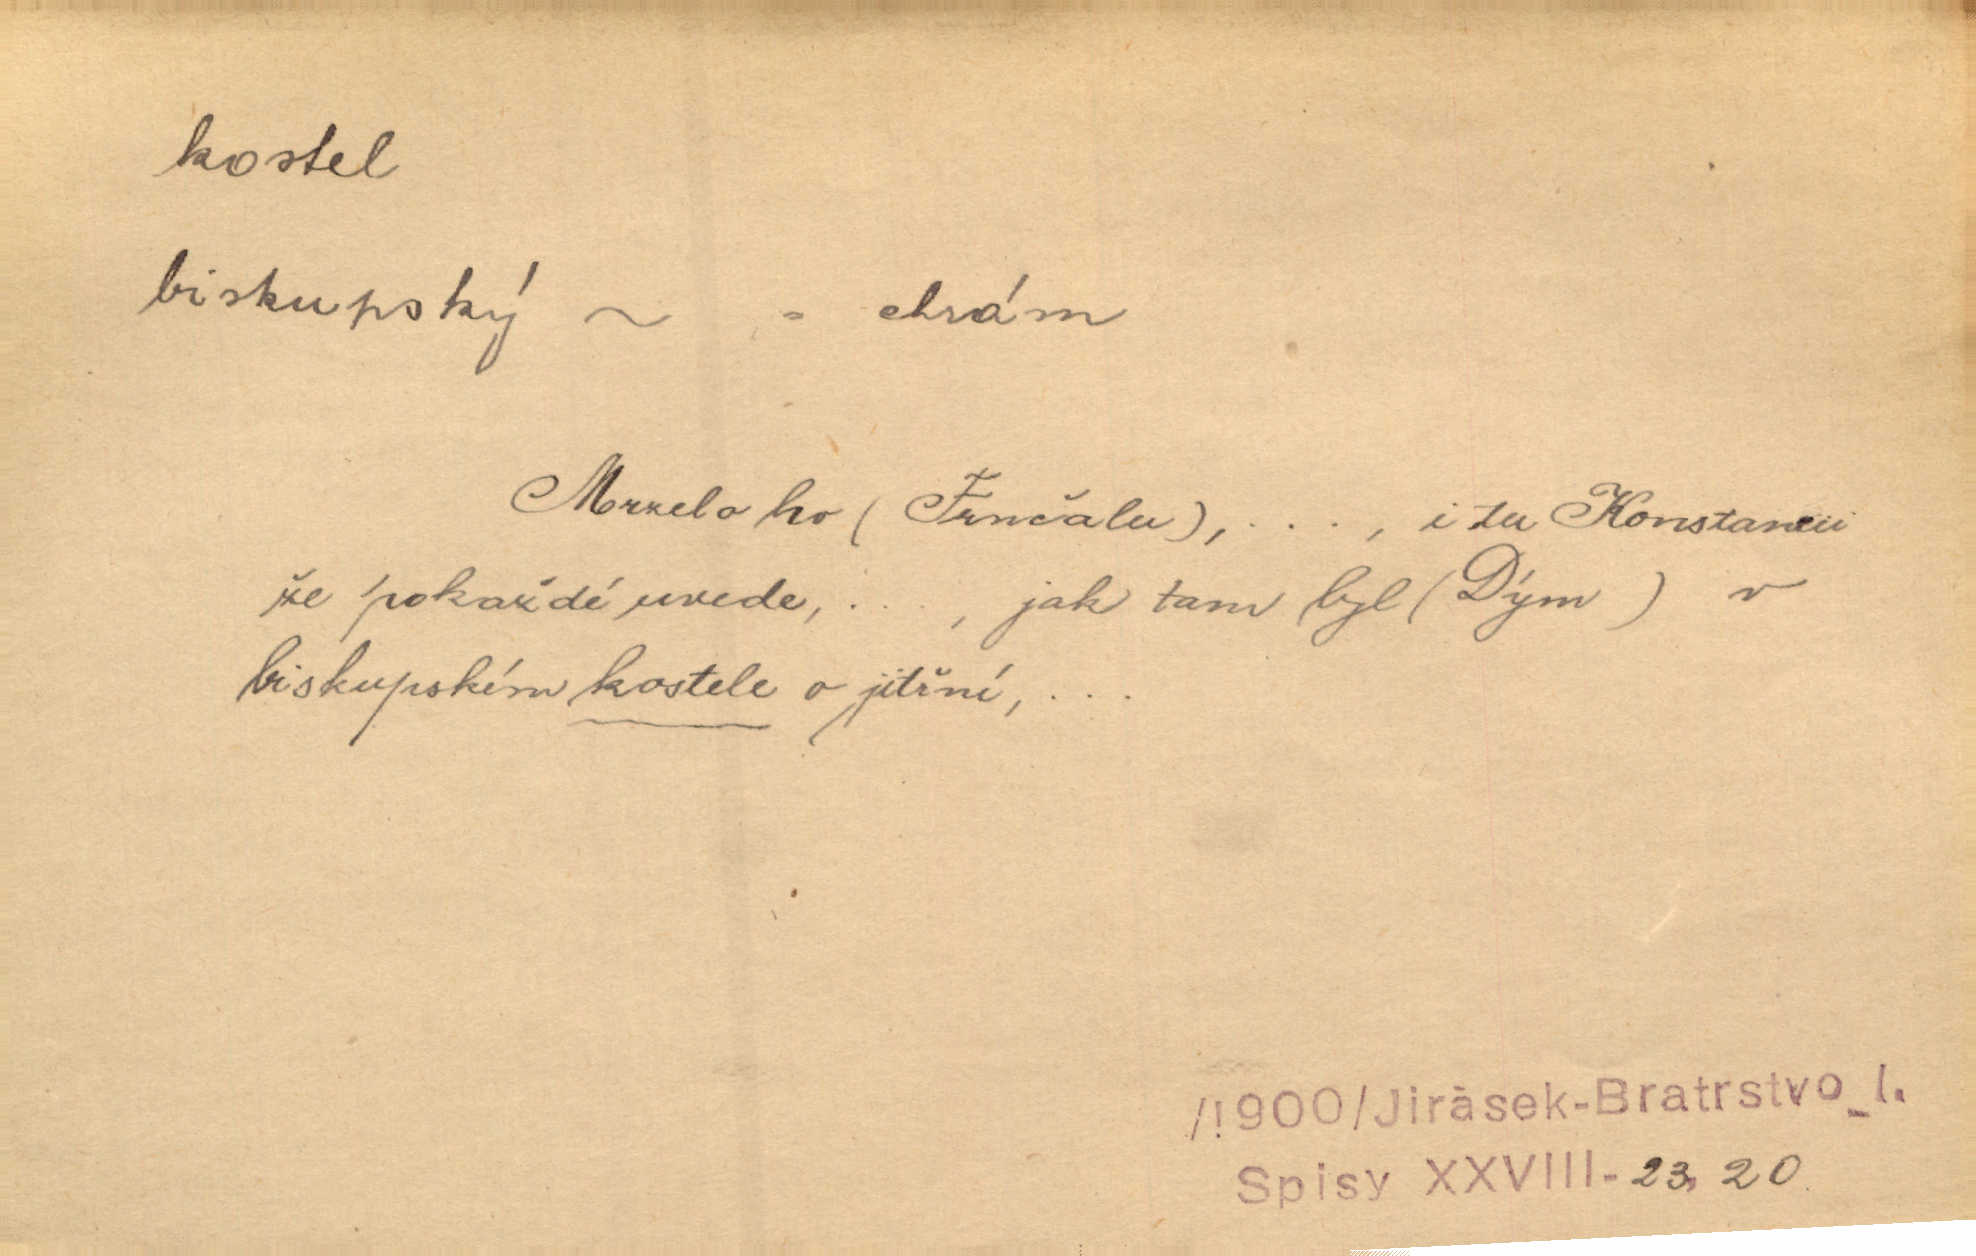 kostel
biskupský ~ = chrám
Mrzelo ho (Frnčalu), . . . , i tu Konstancii
že pokaždé uvede, . . . , jak tam byl (Dým) v
biskupském kostele o jitřní, . . .
/1900/Jirásek-Bratrstvo_I.
Spisy XXVIII-23, 20